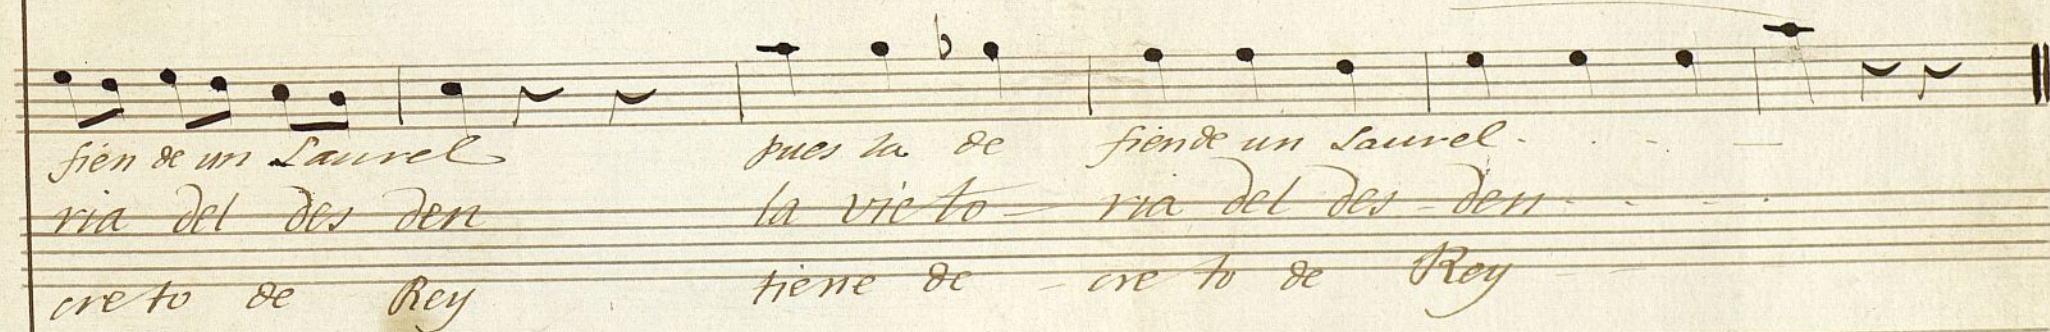 fien de un Laurel pues la de fiende un Laurel - - - -
ria del des den la victo - ria del des - den - - - -
cre to de Rey tiene de - cre to de Rey - -